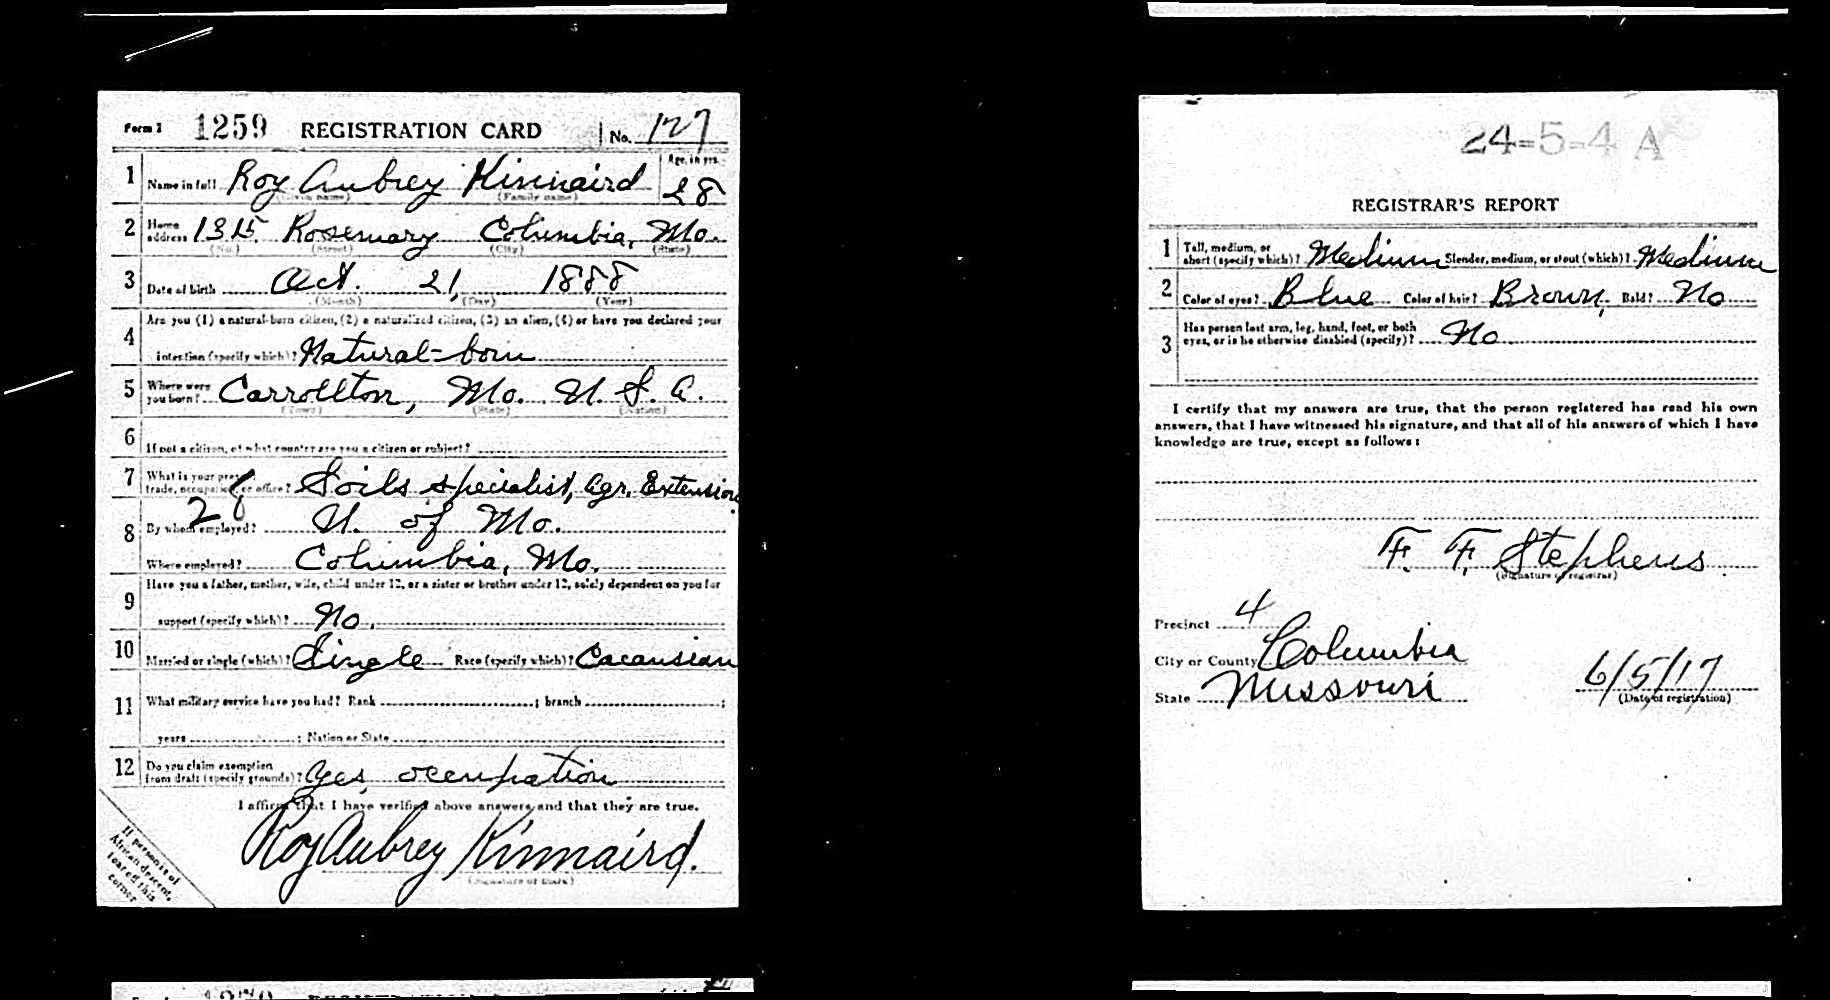 Form 1 1259 REGISTRATION CARD No. 127
1 Name in full Roy Aubrey Kinnaird Age, in yrs. 28
(Given name) (Family name)
2 Home address 1315 Rosemary Columbia, Mo.
(No.) (Street) (City) (State)
3 Date of birth Oct. 21, 1888
(Month) (Day) (Year)
4 Are you (1) a natural-born citizen, (2) a naturalized citizen, (3) an alien, (4) or have you declared your
intention (specify which)? Natural-born
5 Where were you born? Carrollton, Mo. U. S. A.
(Town) (State) (Nation)
6 If not a citizen, of what country are you a citizen or subject?
7 What is your present trade, occupation, or office? Soils specialist, Agr. Extension
28
8 By whom employed? U. of Mo.
Where employed? Columbia, Mo.
9 Have you a father, mother, wife, child under 12, or a sister or brother under 12, solely dependent on you for
support (specify which)? No.
10 Married or single (which)? Single Race (specify which)? Cacausian
11 What military service have you had? Rank ; branch ;
years ; Nation or State
12 Do you claim exemption from draft (specify grounds)? Yes, occupation
I affirm that I have verified above answers and that they are true.
Roy Aubrey Kinnaird.
(Signature or mark)
If person is of
African descent,
tear off this
corner
24-5-4 A
REGISTRAR'S REPORT
1 Tall, medium, or short (specify which)? Medium Slender, medium, or stout (which)? Medium
2 Color of eyes? Blue Color of hair? Brown Bald? No
3 Has person lost arm, leg, hand, foot, or both eyes, or is he otherwise disabled (specify)? No
I certify that my answers are true, that the person registered has read his own
answers, that I have witnessed his signature, and that all of his answers of which I have
knowledge are true, except as follows:
F. F. Stephens
(Signature of registrar)
Precinct 4
City or County Columbia
State Missouri
6/5/17
(Date of registration)